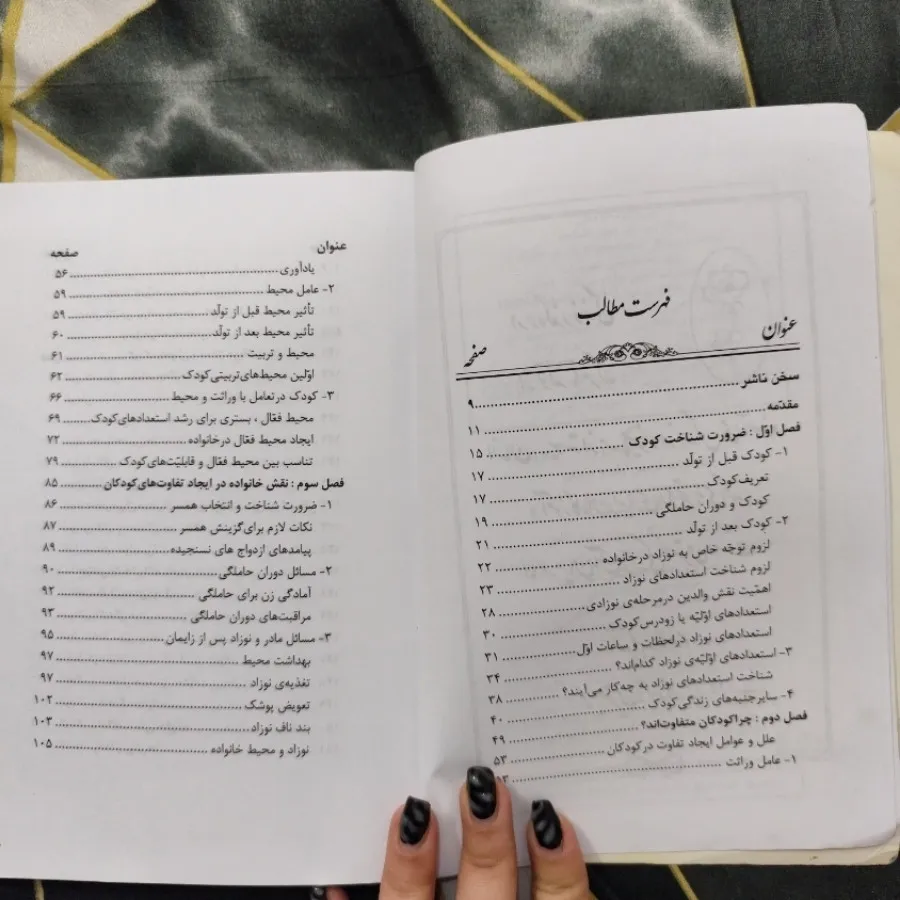 فهرست مطالب
عنوان صفحه
سخن ناشر ........ ۹
مقدّمه ........ ۱۱
فصل اوّل : ضرورت شناخت کودک ........ ۱۵
۱- کودک قبل از تولّد ........ ۱۷
تعریف‌کودک ........ ۱۷
کودک و دوران حاملگی ........ ۱۹
۲- کودک بعد از تولّد ........ ۲۱
لزوم توجّه خاص به نوزاد درخانواده ........ ۲۲
لزوم شناخت استعدادهای نوزاد ........ ۲۳
اهمّیت نقش والدین درمرحله‌ی نوزادی ........ ۲۸
استعدادهای اوّلیّه یا زودرس‌کودک ........ ۳۰
استعدادهای نوزاد درلحظات و ساعات اوّل ........ ۳۱
۳- استعدادهای اوّلیّه‌ی نوزاد کدام‌اند؟ ........ ۳۴
شناخت استعدادهای نوزاد به چه‌کار می‌آیند؟ ........ ۳۸
۴- سایرجنبه‌های زندگی‌کودک ........ ۴۰
فصل دوم : چراکودکان متفاوت‌اند؟ ........ ۴۹
علل و عوامل ایجاد تفاوت درکودکان ........ ۵۳
۱- عامل وراثت ........
عنوان صفحه
یادآوری ........ ۵۶
۲- عامل محیط ........ ۵۹
تأثیر محیط قبل از تولّد ........ ۵۹
تأثیر محیط بعد از تولّد ........ ۶۰
محیط و تربیت ........ ۶۱
اوّلین محیط‌های‌تربیتی‌کودک ........ ۶۲
۳- کودک درتعامل با وراثت و محیط ........ ۶۶
محیط فعّال ، بستری برای رشد استعدادهای‌کودک ........ ۶۹
ایجاد محیط فعّال درخانواده ........ ۷۲
تناسب بین محیط فعّال و قابلیّت‌های‌کودک ........ ۷۹
فصل سوم : نقش خانواده در ایجاد تفاوت‌های‌کودکان ........ ۸۵
۱- ضرورت شناخت و انتخاب همسر ........ ۸۶
نکات لازم برای‌گزینش همسر ........ ۸۷
پیامدهای ازدواج های نسنجیده ........ ۸۹
۲- مسائل دوران حاملگی ........ ۹۰
آمادگی زن برای حاملگی ........ ۹۲
مراقبت‌های دوران حاملگی ........ ۹۳
۳- مسائل مادر و نوزاد پس از زایمان ........ ۹۵
بهداشت محیط ........ ۹۷
تغذیه‌ی نوزاد ........ ۹۷
تعویض پوشک ........ ۱۰۲
بند ناف نوزاد ........ ۱۰۳
نوزاد و محیط خانواده ........ ۱۰۵